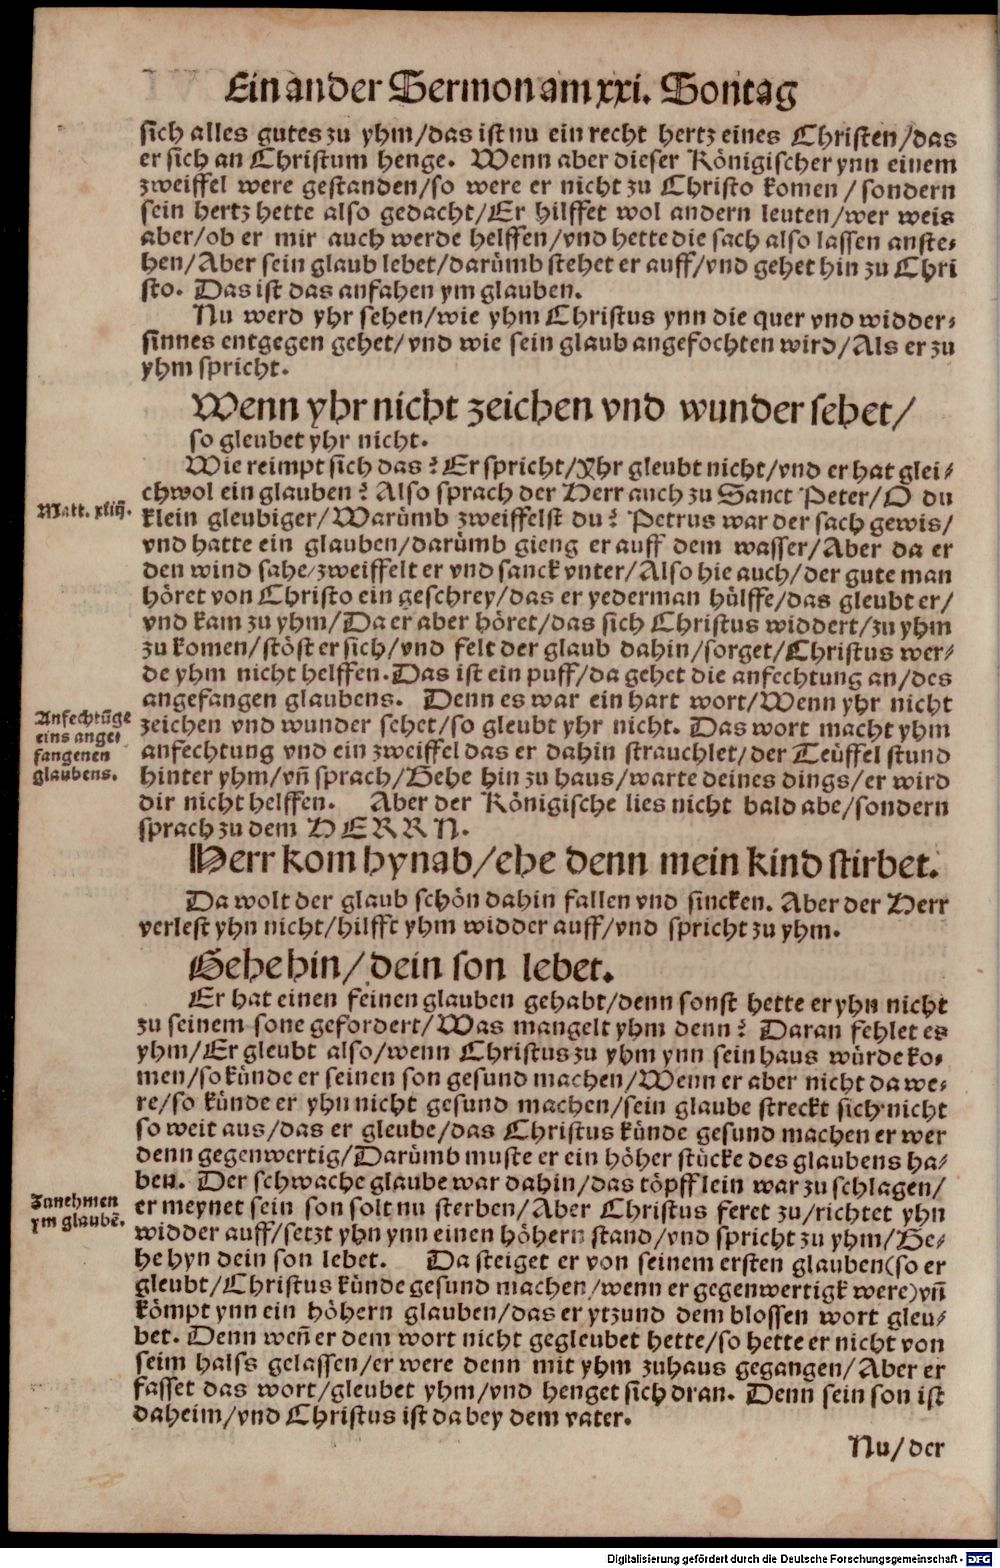 Ein ander Sermon am xxi. Sontag
sich alles gutes zu yhm/das ist nu ein recht hertz eines Christen/das
er sich an Christum henge. Wenn aber dieser Königischer ynn einem
zweiffel were gestanden/so were er nicht zu Christo komen/sondern
sein hertz hette also gedacht/Er hilffet wol andern leuten/wer weis
aber/ob er mir auch werde helffen/vnd hette die sach also lassen anste-
hen/Aber sein glaub lebet/darümb stehet er auff/vnd gehet hin zu Chri
sto. Das ist das anfahen ym glauben.
Nu werd yhr sehen/wie yhm Christus ynn die quer vnd widder-
sinnes entgegen gehet/vnd wie sein glaub angefochten wird/Als er zu
yhm spricht.
Wenn yhr nicht zeichen vnd wunder sehet/
so gleubet yhr nicht.
Wie reimpt sich das? Er spricht/Yhr gleubt nicht/vnd er hat glei-
chwol ein glauben? Also sprach der Herr auch zu Sanct Peter/O du
Matt. xiiij.
klein gleubiger/Warümb zweiffelst du? Petrus war der sach gewis/
vnd hatte ein glauben/darümb gieng er auff dem wasser/Aber da er
den wind sahe/zweiffelt er vnd sanck vnter/Also hie auch/der gute man
höret von Christo ein geschrey/das er yederman hülffe/das gleubt er/
vnd kam zu yhm/Da er aber höret/das sich Christus widdert/zu yhm
zu komen/stöst er sich/vnd felt der glaub dahin/sorget/Christus wer-
de yhm nicht helffen. Das ist ein puff/da gehet die anfechtung an/des
angefangen glaubens. Denn es war ein hart wort/Wenn yhr nicht
Anfechtūge
eins ange-
fangenen
glaubens.
zeichen vnd wunder sehet/so gleubt yhr nicht. Das wort macht yhm
anfechtung vnd ein zweiffel das er dahin strauchlet/der Teüffel stund
hinter yhm/vñ sprach/Gehe hin zu haus/warte deines dings/er wird
dir nicht helffen. Aber der Königische lies nicht bald abe/sondern
sprach zu dem HERRN.
Herr kom hynab/ehe denn mein kind stirbet.
Da wolt der glaub schön dahin fallen vnd sincken. Aber der Herr
verlest yhn nicht/hilfft yhm widder auff/vnd spricht zu yhm.
Gehe hin/dein son lebet.
Er hat einen feinen glauben gehabt/denn sonst hette er yhn nicht
zu seinem sone gefordert/Was mangelt yhm denn? Daran fehlet es
yhm/Er gleubt also/wenn Christus zu yhm ynn sein haus würde ko-
men/so künde er seinen son gesund machen/Wenn er aber nicht da we-
re/so künde er yhn nicht gesund machen/sein glaube streckt sich nicht
so weit aus/das er gleube/das Christus künde gesund machen er wer
denn gegenwertig/Darümb muste er ein höher stücke des glaubens ha-
ben. Der schwache glaube war dahin/das töpfflein war zu schlagen/
Zunehmen
ym glaubē.
er meynet sein son solt nu sterben/Aber Christus feret zu/richtet yhn
widder auff/setzt yhn ynn einen höhern stand/vnd spricht zu yhm/Ge-
he hyn dein son lebet. Da steiget er von seinem ersten glauben(so er
gleubt/Christus künde gesund machen/wenn er gegenwertigk were)vñ
kömpt ynn ein höhern glauben/das er ytzund dem blossen wort gleu-
bet. Denn weñ er dem wort nicht gegleubet hette/so hette er nicht von
seim halss gelassen/er were denn mit yhm zuhaus gegangen/Aber er
fasset das wort/gleubet yhm/vnd henget sich dran. Denn sein son ist
daheim/vnd Christus ist da bey dem vater.
Nu/der
Digitalisierung gefördert durch die Deutsche Forschungsgemeinschaft - DFG